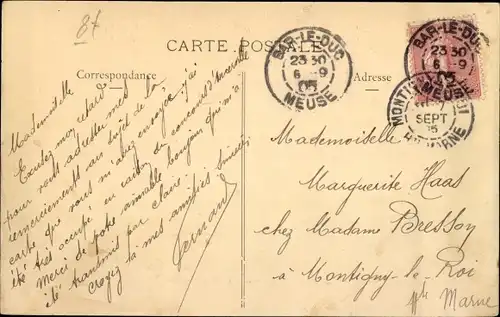 87
CARTE POSTALE
Correspondance
Adresse
BAR-LE-DUC
23 30
6 -9
05
MEUSE
BAR-LE-DUC
23 30
6 -9
05
MEUSE
SEPT
05
Mademoiselle
Excusez mon retard
pour vous adresser mes
remerciements au sujet de la
carte que vous m'avez envoyée, j'ai
été très occupé en raison du concours d'
Merci de votre aimable bonjour qui m'a
été transmis par Claire.
Croyez à mes amitiés sincères
Fernand
Mademoiselle
Marguerite Haas
chez Madame Bresson
à Montigny-le-Roi
Hte Marne